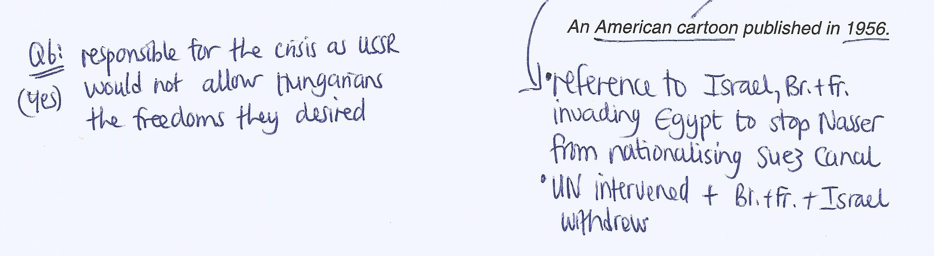 Q6: responsible for the crisis as USSR
(yes) would not allow Hungarians
the freedoms they desired
An American cartoon published in 1956.
•reference to Israel, Br.+Fr.
invading Egypt to stop Nasser
from nationalising Suez Canal
•UN intervened + Br.+Fr. + Israel
withdrew